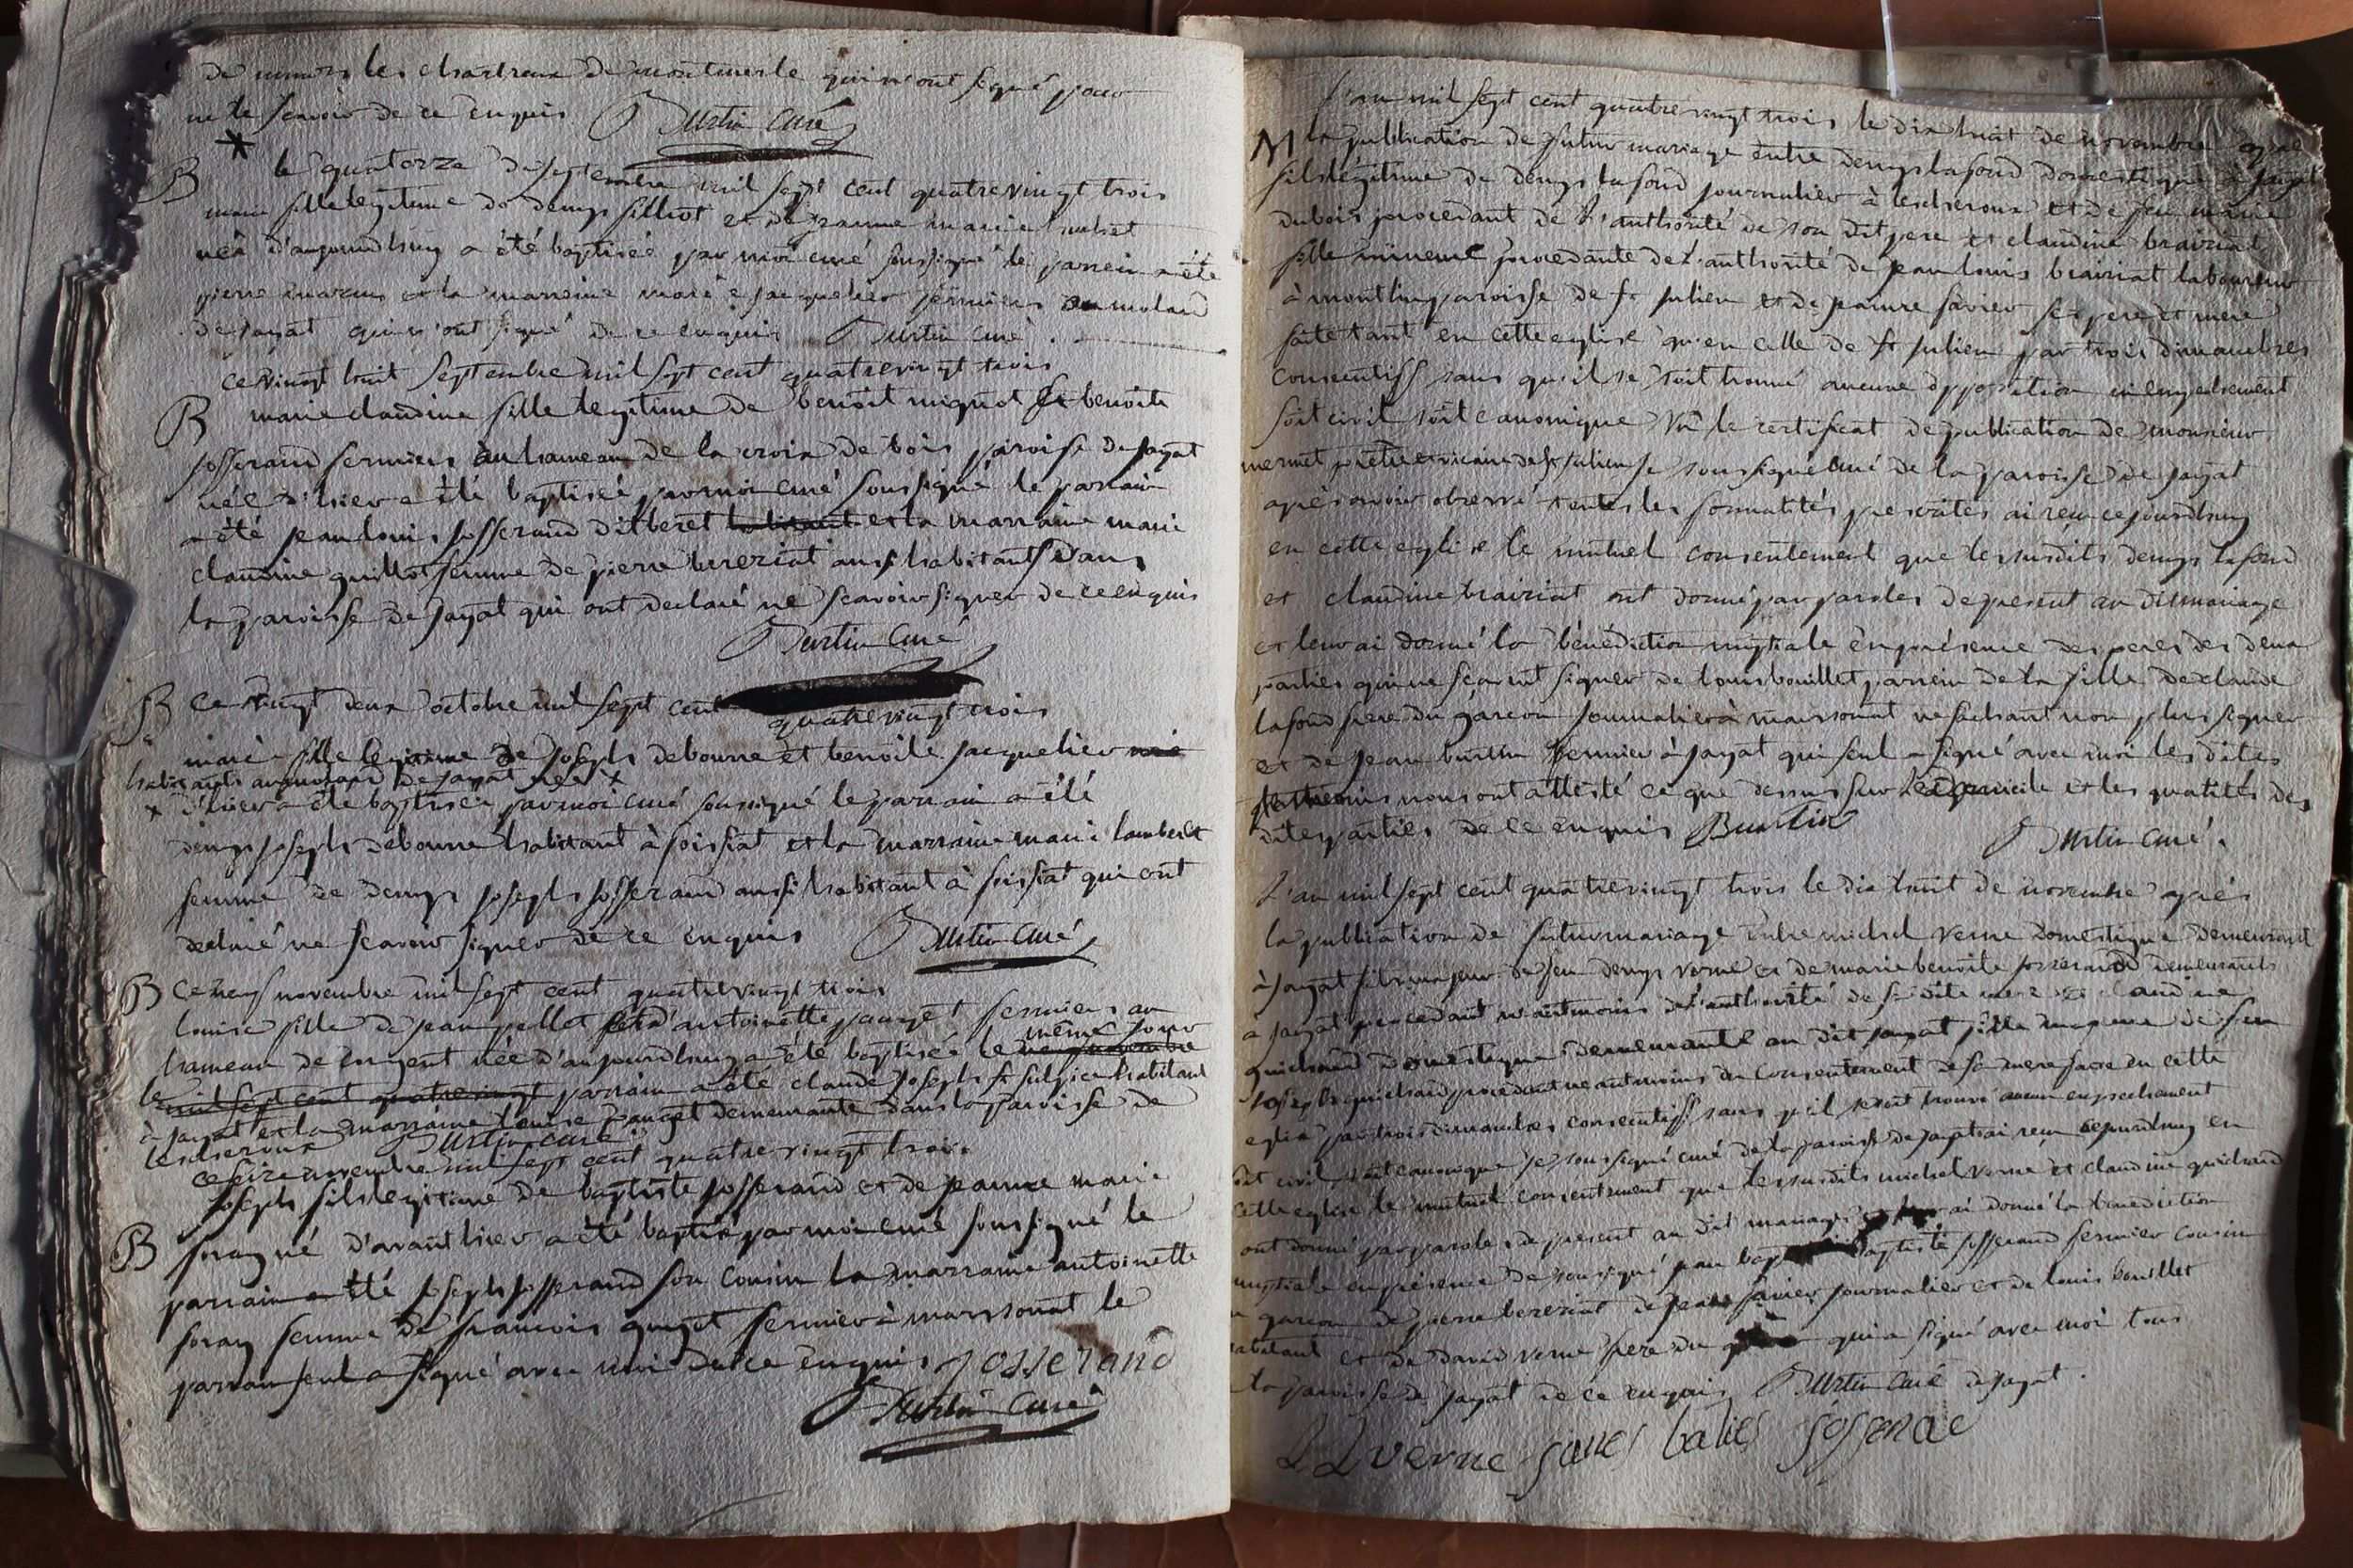 de messieurs les chartreux de montmerle qui n'ont signé pour
ne le scavoir de ce enquis Burtin curé
B le quatorze de septembre mil sept cent quatre vingt trois
marie fille legitime de denys filliot et de jeanne marie
née d'aujourdhuy a été baptisée par moi curé soussigné le parrein a été
pierre et la marreine marie jacquelier fermiers au molard
de jayat qui n'ont signé de ce enquis Burtin curé.
ce vingt huit septembre mil sept cent quatre vingt trois
B marie claudine fille legitime de benoit mignot et benoite
josserand fermiers au hameau de la croix de bois paroisse de jayat
née d'hier a été baptisée par moi curé soussigné le parrain
a été jean louis josserand dit beret habitant et la marraine marie
claudine guillot femme de pierre berezriat aussi habitants dans
la paroisse de jayat qui ont declaré ne scavoir signer de ce enquis
Burtin curé
B ce vingt deux octobre mil sept cent
quatre vingt trois
marie fille legitime de joseph debourne et benoite jacquelier née
habitants au molard de jayat née x
x d'hier a été baptisée par moi curé soussigné le parrain a été
denys joseph debourne habitant à foissiat et la marraine marie lambert
femme de denys joseph josserand aussi habitant à foissiat qui ont
declaré ne scavoir signer de ce enquis Burtin curé
B ce neuf novembre mil sept cent quatre vingt trois
louise fille de jean pellet et d'antoinette pauget fermiers au
hameau de née d'aujourdhuy a été baptisée le même jour
le mil sept cent quatre vingt parrain a été claude joseph st sulpice habitant
à jayat et la marraine louise pauget demeurante dans la paroisse de
lescheroux Burtin curé
ce seize novembre mil sept cent quatre vingt trois
joseph fils legitime de baptiste josserand et de jeanne marie
B foray né d'avant hier a été baptisé par moi curé soussigné le
parrain a été joseph josserand son cousin la marraine antoinette
foray femme de francois guyot fermier à marsonat le
parrain seul a signé avec moi de ce enquis josserand
Burtin curé
l'an mil sept cent quatre vingt trois le dix huit de novembre après
M la publication de futur mariage entre denys lafond domestique à jayat
fils légitime de denys lafond journalier à lescheroux et de feu marie
dubois procedant de l'authorité de son dit pere et claudine brairiat
fille mineure procedante de l'authorité de jean louis brairiat laboureur
à montlin paroisse de st julien et de jeanne favier ses pere et mere
faite tant en cette eglise qu'en celle de st julien par trois dimanches
consecutiff sans qu'il se soit trouvé aucune opposition ni empechement
soit civil soit canonique vu le certificat de publication de monsieur
mermet pretre et vicaire de st julien je soussigné curé de la paroisse de jayat
après avoir observé toutes les formalités prescrites ai reçu ce jourdhuy
en cette eglise le mutuel consentement que les susdits denys lafond
et claudine brairiat ont donné par paroles de present au dit mariage
et leur ai donné la bénédiction nuptiale en présence des peres des deux
parties qui ne scavent signer de louis bouillet parrein de la fille de claude
lafond frere du garcon journalier à marsonat ne sachant non plus signer
et de jean burtin fermier à jayat qui seul a signé avec moi les dites
temoins nous ont attesté ce que dessus sur le domicile et les qualités des
dites parties de ce enquis Burtin Burtin curé.
L'an mil sept cent quatre vingt trois le dix huit de novembre après
la publication de futur mariage entre michel verne domestique demeurant
à jayat fils majeur de feu denys verne et de marie benoite josserand demeurants
à jayat procedant neantmoins de l'authorité de sa dite mere et claudine
guichard domestique demeurante au dit jayat fille majeure de feu
joseph guichard procedant neantmoins du consentement de sa mere faite en cette
eglise par trois dimanches consecutiff sans qu'il se soit trouvé aucun empechement
soit civil soit canonique je soussigné curé de la paroisse de jayat ai reçu ce jourdhuy en
cette eglise le mutuel consentement que les susdits michel verne et claudine guichard
ont donné par paroles de present au dit mariage et leur ai donné la benediction
nuptiale en présence de soussigné jean baptiste josserand fermier cousin
du garcon de pierre berezriat de jean favier journalier et de louis bouillet
habitant et de david verne frere du qui a signé avec moi tous
de la paroisse de jayat de ce enquis Burtin curé de jayat.
verne josserand